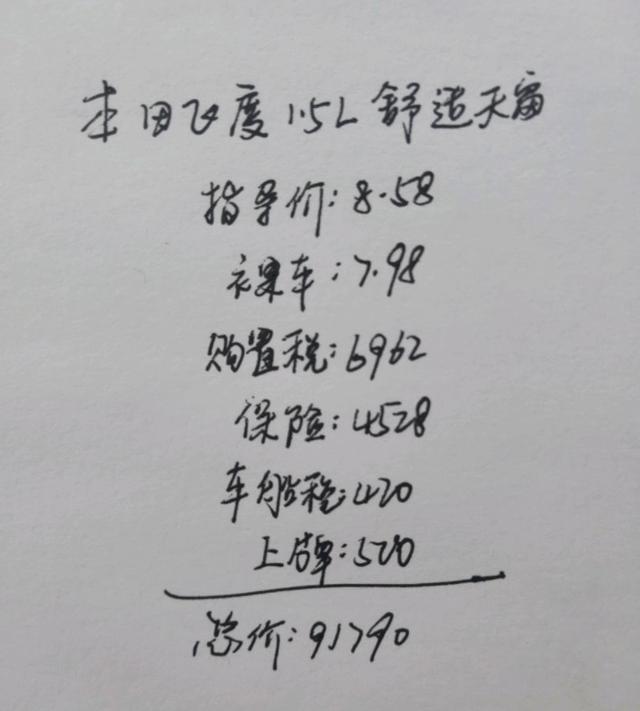 本田飞度1.5L舒适天窗
指导价:8.58
裸车:7.98
购置税:6962
保险:4528
车船税:420
上牌:500
总价:91790